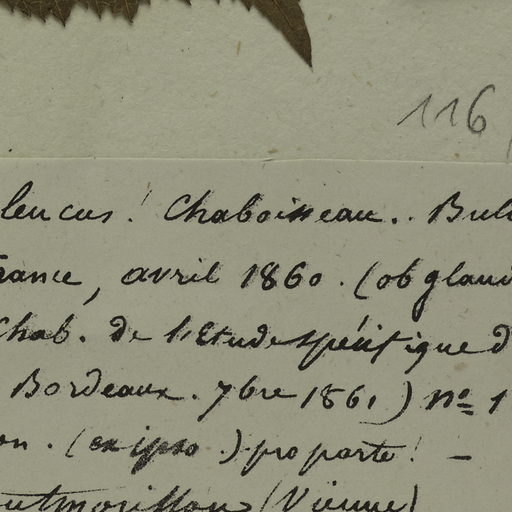 116
leucus! Chaboisseau. Bul
rance, avril 1860. (ob glau
Chab. de l'Etude spécifique d
Bordeaux. 7bre 1861) nº 1
on. (ex ipso.) pro parte! -
(Vienne)